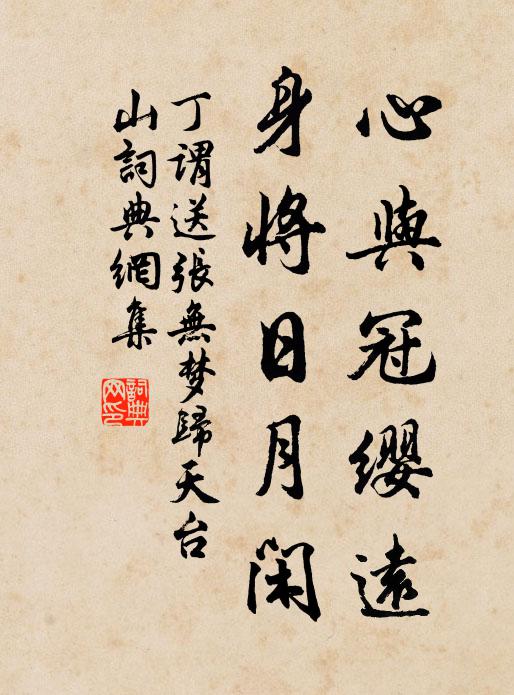 心與冠纓遠
身將日月閑
丁謂送張無梦歸天台
山詞典網集
詞典
网印